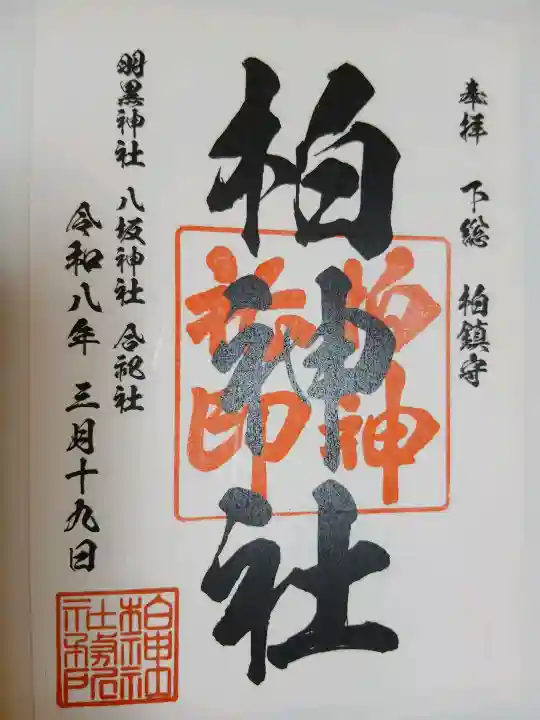 奉拝 下総 柏鎮守
柏神社
柏神社印
羽黒神社 八坂神社 合祀社
令和八年 三月十九日